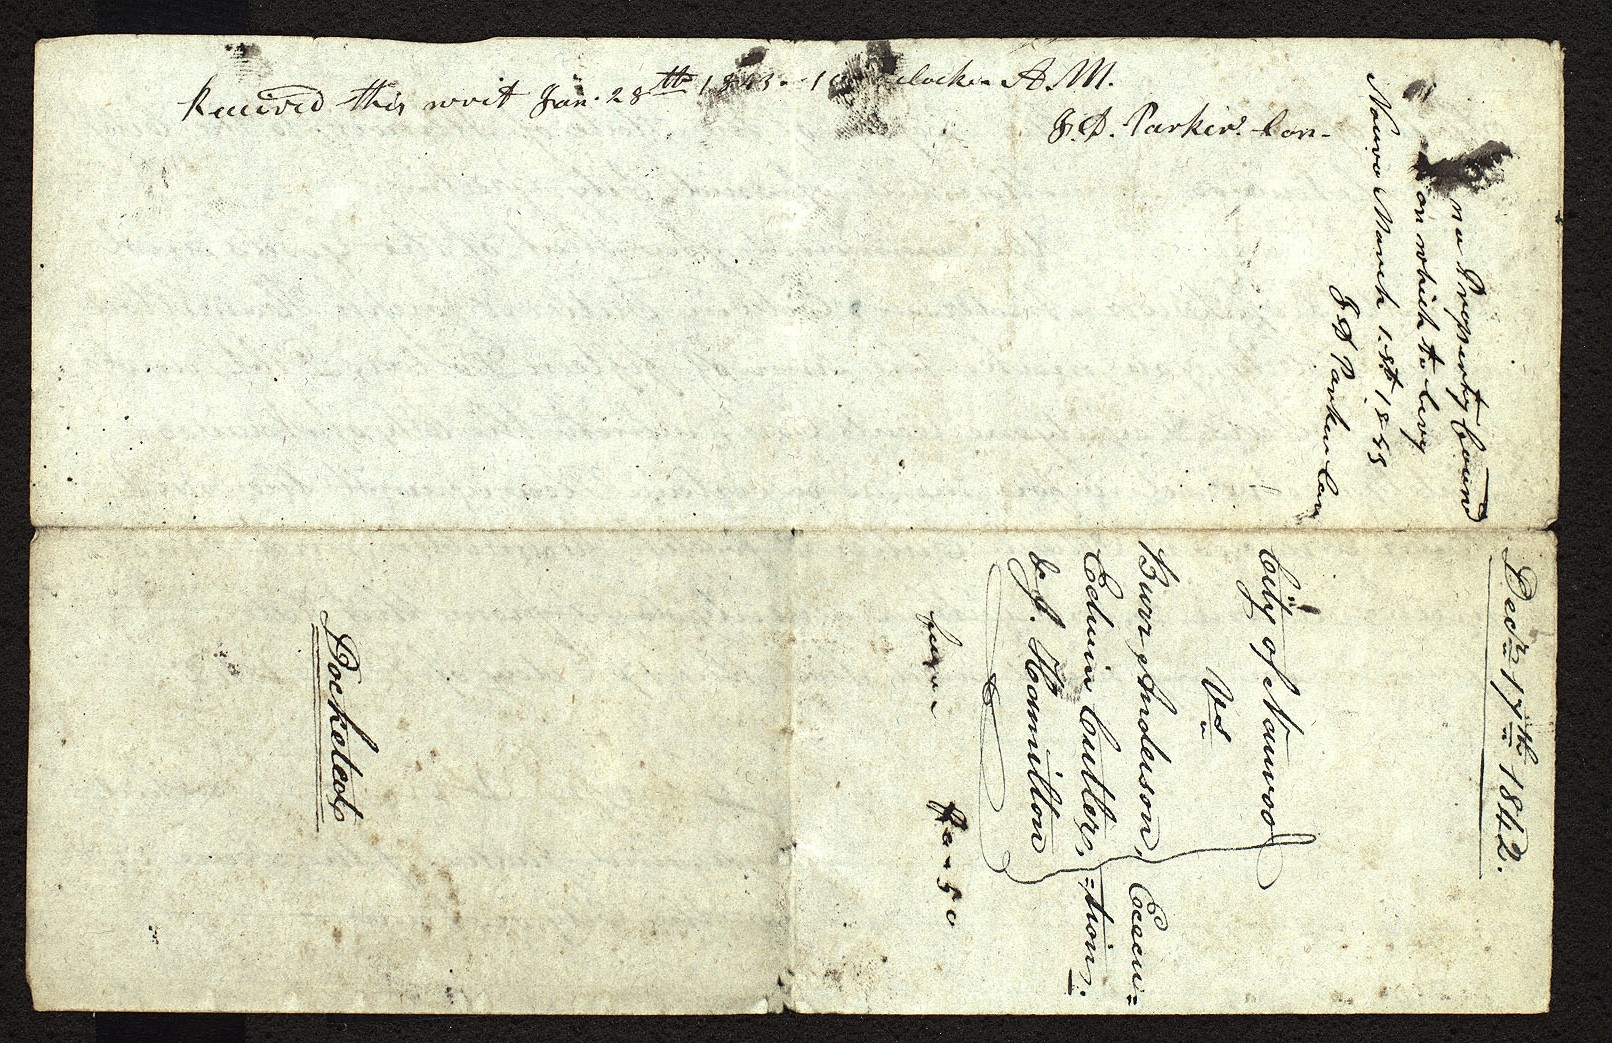 Received this writ Jan. 28th 1843. 1 clock A.M.
J. D. Parker. Con.
no Property found
on which to levy
Nouvo March 1.st 1843
J D Parker Con
Decr. 17th 1842.
City of Nauvoo
Vs
Burr Anderson, Execu=
Edwin Cutler, =tion.
& J. Hamilton
50
Docketed